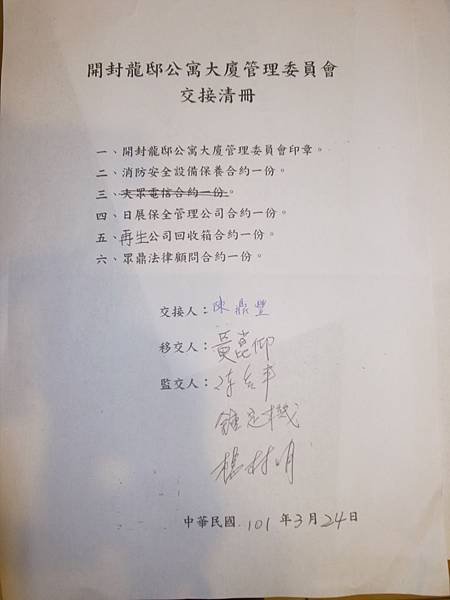 開封龍邸公寓大廈管理委員會
交接清冊
一、開封龍邸公寓大廈管理委員會印章。
二、消防安全設備保養合約一份。
三、大眾電信合約一份。
四、日展保全管理公司合約一份。
五、再生公司回收箱合約一份。
六、眾鼎法律顧問合約一份。
交接人：陳鼎豐
移交人：黃崑仰
監交人：
楊村明
中華民國 101 年3月24日